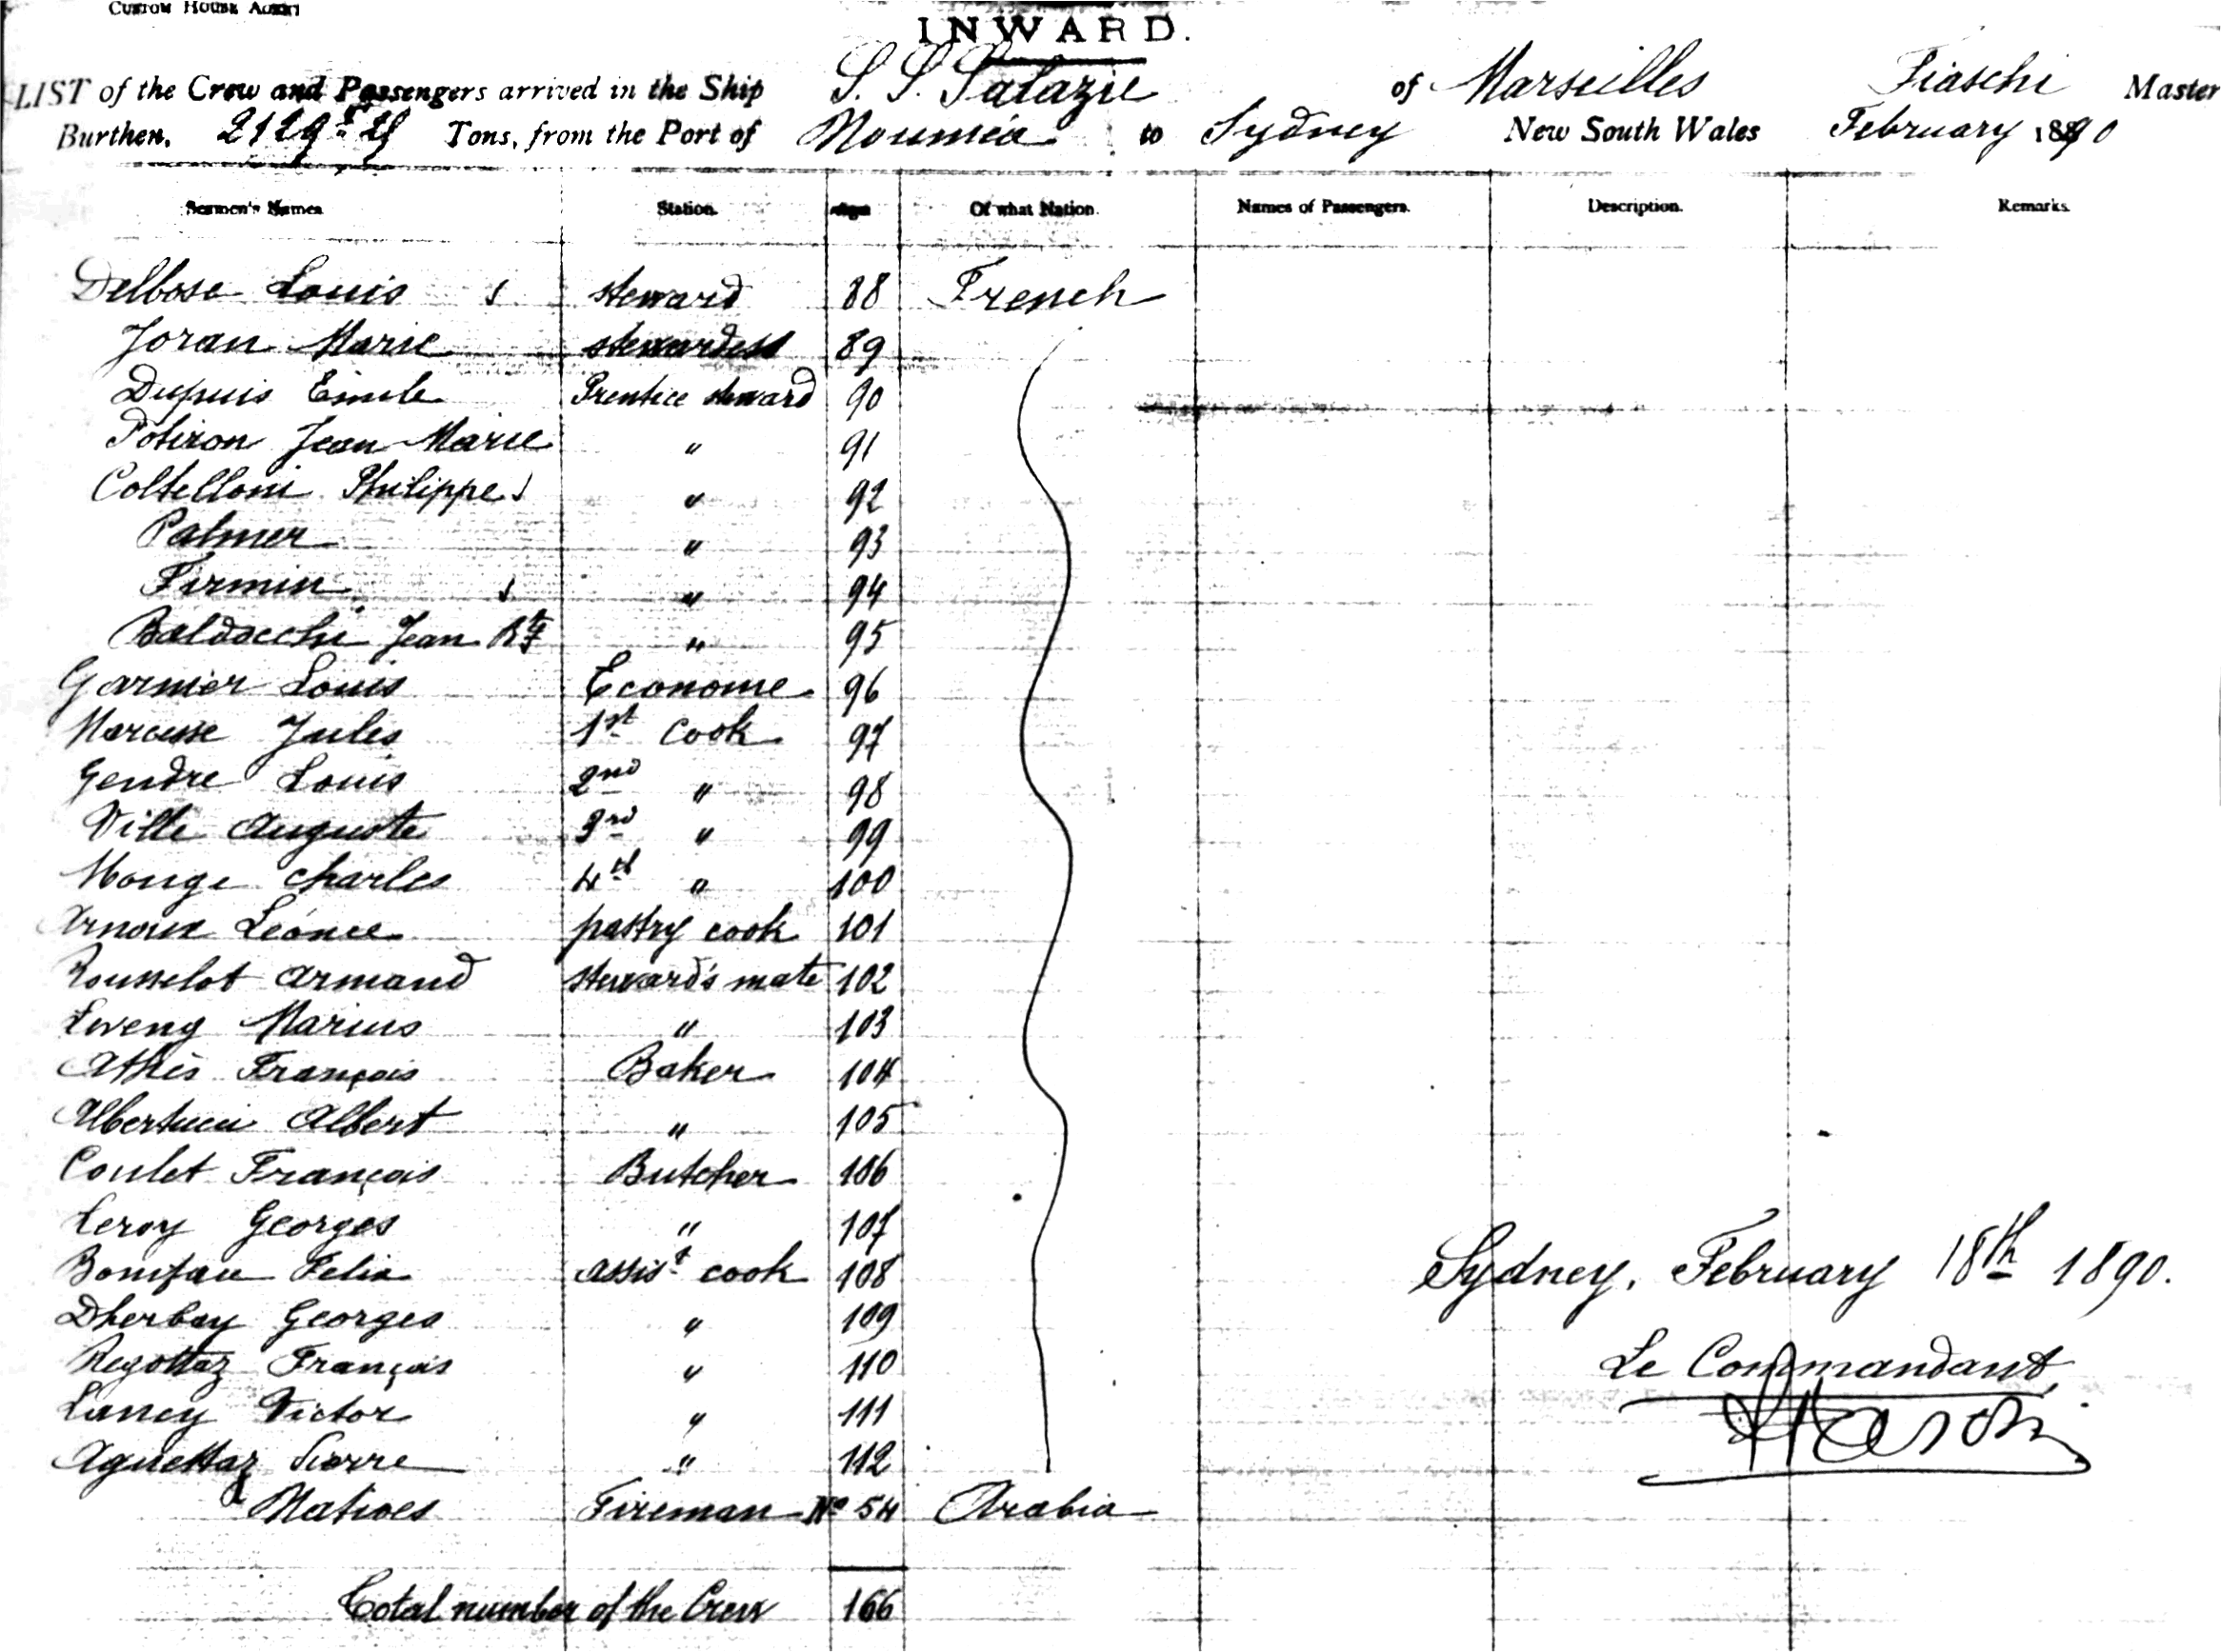 CUSTOM HOUSE AGENT
INWARD.
LIST of the Crew and Passengers arrived in the Ship S. S. Salazie of Marseilles Fiaschi Master
Burthen, Tons, from the Port of Nouméa to Sydney New South Wales February 1890
Seamen's Names Station. Age Of what Nation. Names of Passengers. Description. Remarks.
Delbosc Louis steward 88 French
Joran Marie stewardess 89
Dupuis Emile Prentice steward 90
Potiron Jean Marie " 91
Coltelloni Philippe " 92
Palmer " 93
Firmin " 94
Baldacchi Jean Bte " 95
Garnier Louis Econome 96
Marcusse Jules 1st Cook 97
Gendre Louis 2nd " 98
Ville Auguste 3rd " 99
Monge Charles 4th " 100
Arnoux Léonce pastry cook 101
Rousselot Armand steward's mate 102
Marius " 103
Athès François Baker 104
Albertucci Albert " 105
Coulet François Butcher 106
Leroy Georges " 107
Boniface Felix assist cook 108
Dherbey Georges " 109
Regottaz François " 110
Lancy Victor " 111
Agnettaz Pierre " 112
Natives Fireman No 54 Arabia
Total number of the Crew 166
Sydney, February 18th 1890.
Le Commandant,